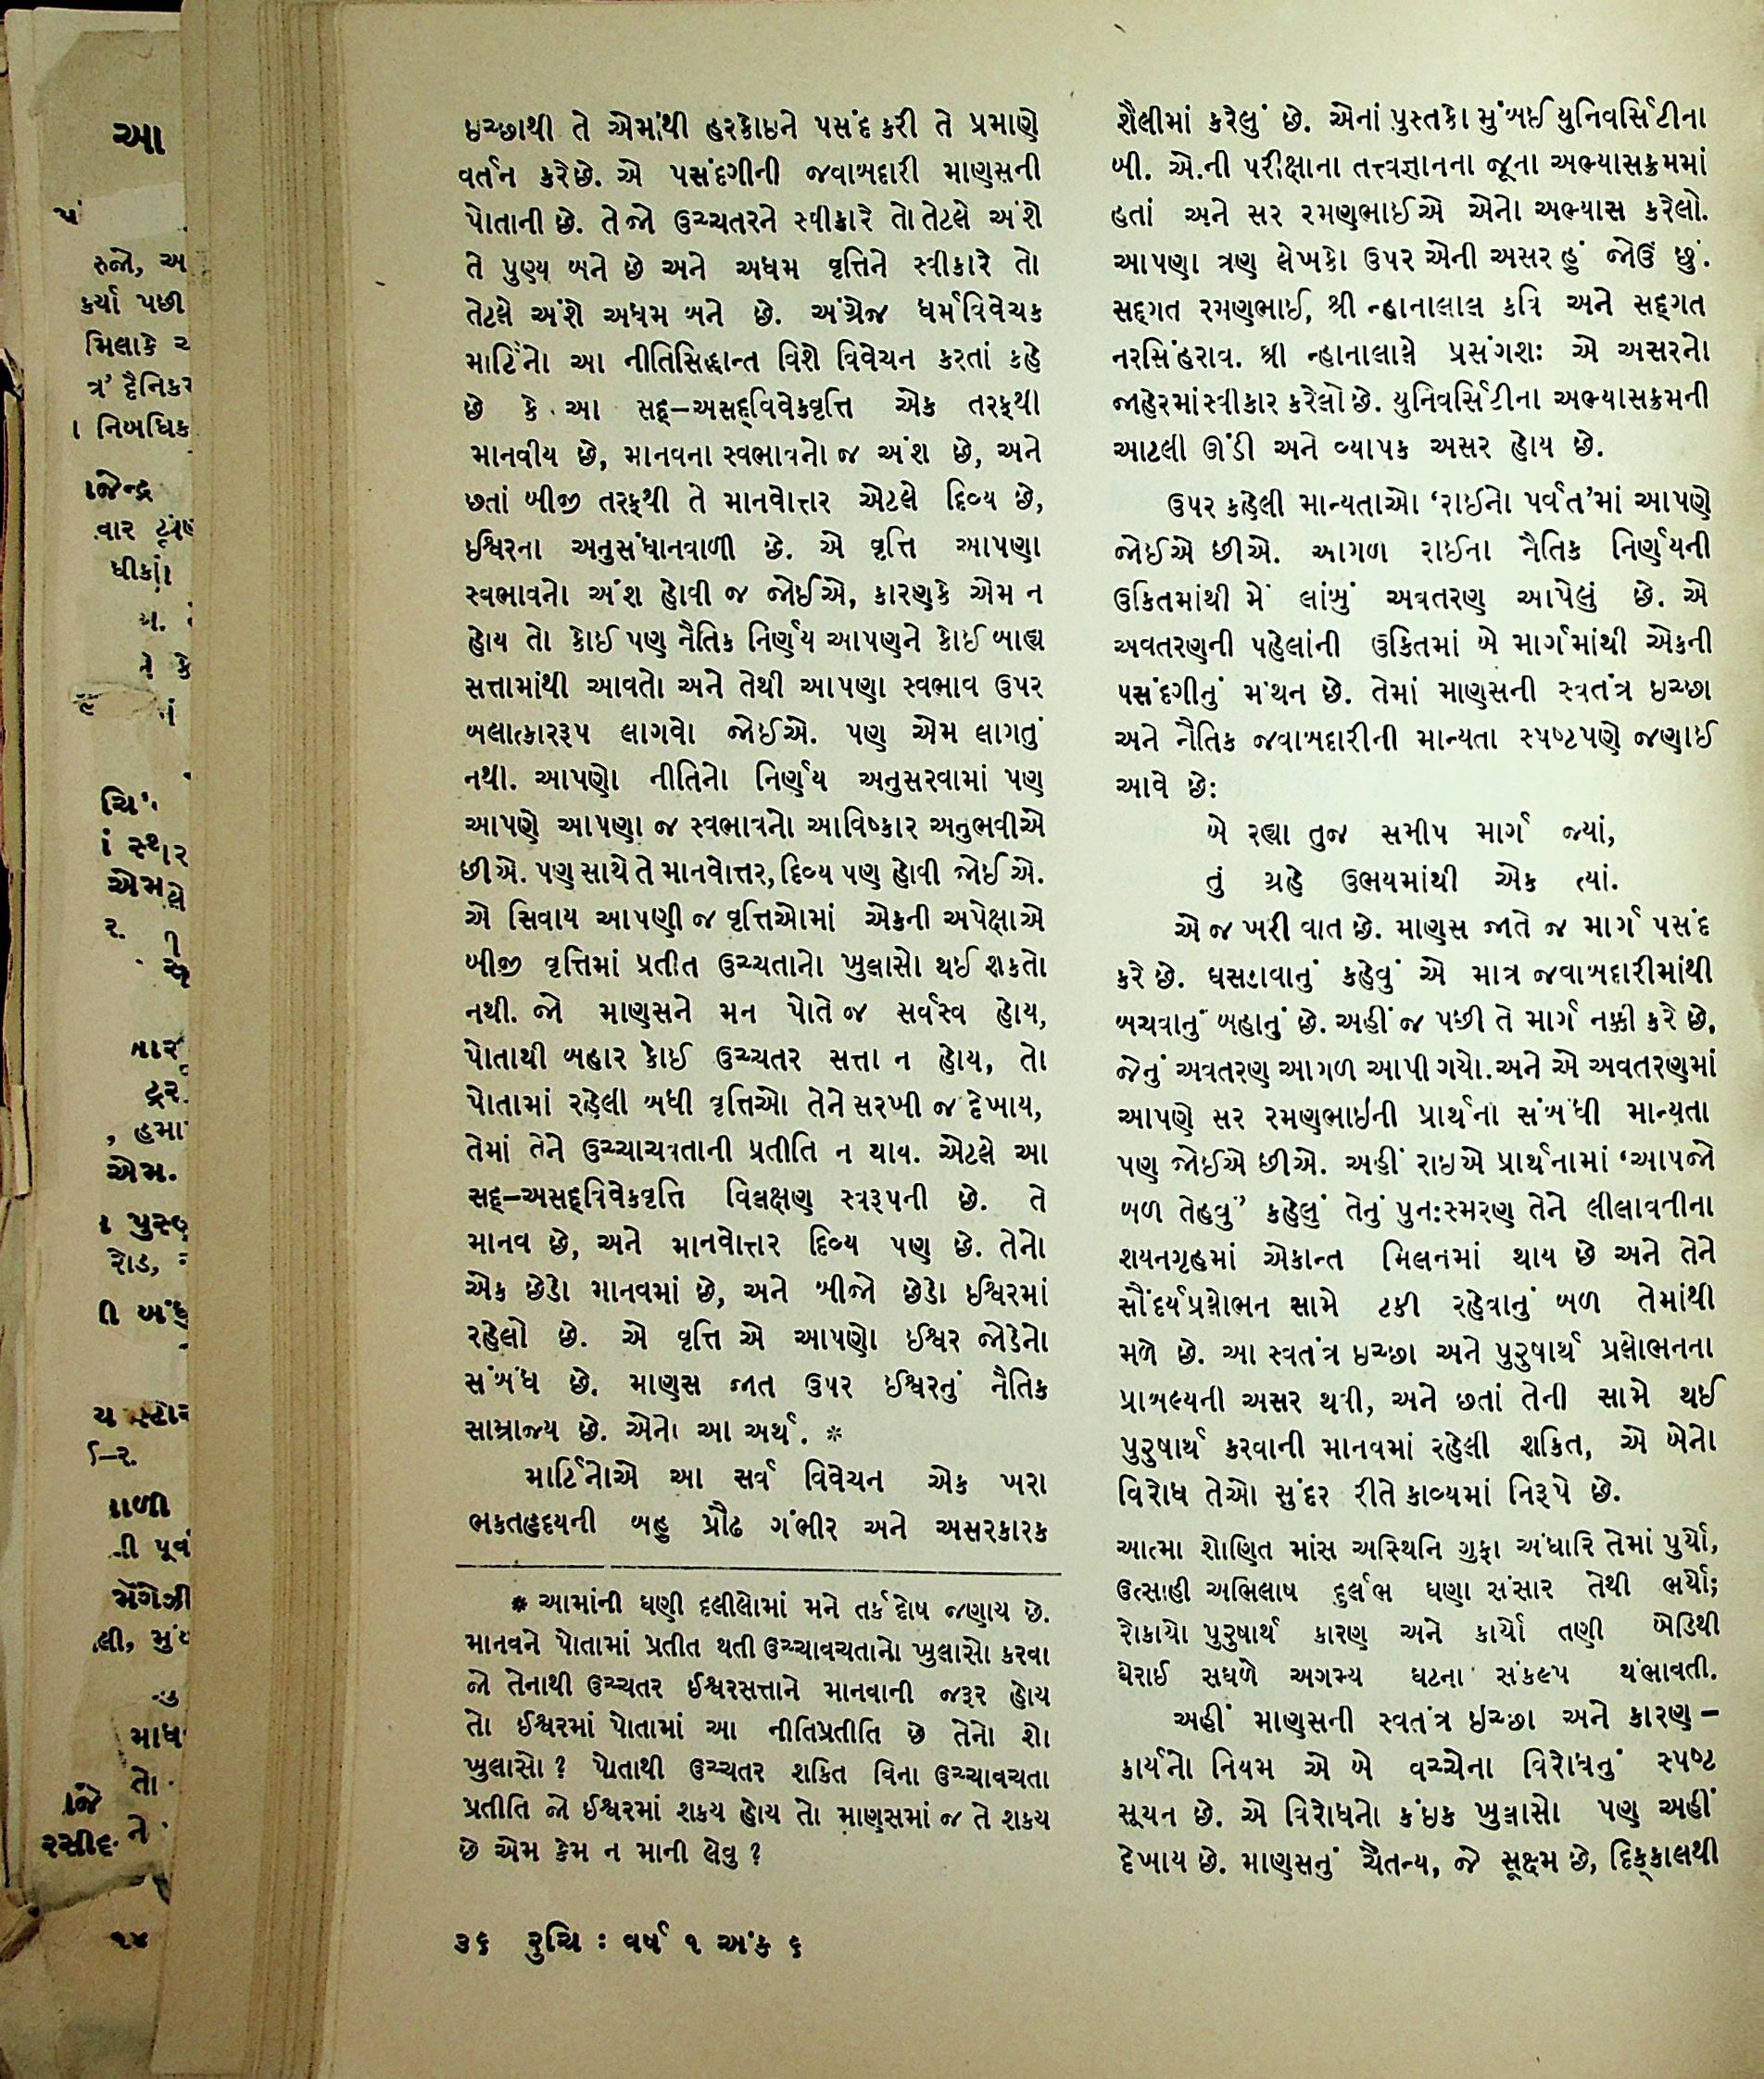 ઇચ્છાથી તે એમાંથી હરકોઇને પસંદ કરી તે પ્રમાણે
વર્તન કરેછે. એ પસંદગીની જવાબદારી માણસની
પોતાની છે. તે જો ઉચ્ચતરને સ્વીકારે તો તેટલે અંશે
તે પુણ્ય બને છે અને અધમ વૃત્તિને સ્વીકારે તો
તેટલે અંશે અધમ બને છે. અંગ્રેજ ધર્મવિવેચક
માર્ટિનો આ નીતિસિદ્ધાન્ત વિશે વિવેચન કરતાં કહે
છે કે આ સદ્-અસદ્વિવેકવૃત્તિ એક તરફથી
માનવીય છે, માનવના સ્વભાવનો જ અંશ છે, અને
છતાં બીજી તરફથી તે માનવોત્તર એટલે દિવ્ય છે,
ઈશ્વરના અનુસંધાનવાળી છે. એ વૃત્તિ આપણા
સ્વભાવનો અંશ હોવી જ જોઈએ, કારણકે એમ ન
હોય તો કોઈ પણ નૈતિક નિર્ણય આપણને કોઈ બાહ્ય
સત્તામાંથી આવતો અને તેથી આપણા સ્વભાવ ઉપર
બલાત્કારરૂપ લાગવો જોઈએ. પણ એમ લાગતું
નથી. આપણો નીતિનો નિર્ણય અનુસરવામાં પણ
આપણે આપણા જ સ્વભાવનો આવિષ્કાર અનુભવીએ
છીએ. પણ સાથે તે માનવોત્તર, દિવ્ય પણ હોવી જોઈએ.
એ સિવાય આપણી જ વૃત્તિઓમાં એકની અપેક્ષાએ
બીજી વૃત્તિમાં પ્રતીત ઉચ્ચતાનો ખુલાસો થઈ શકતો
નથી. જો માણસને મન પોતે જ સર્વસ્વ હોય,
પોતાથી બહાર કોઈ ઉચ્ચતર સત્તા ન હોય, તો
પોતામાં રહેલી બધી વૃત્તિઓ તેને સરખી જ દેખાય,
તેમાં તેને ઉચ્ચાવચતાની પ્રતીતિ ન થાય. એટલે આ
સદ્-અસદ્વિવેકવૃત્તિ વિલક્ષણ સ્વરૂપની છે. તે
માનવ છે, અને માનવોત્તર દિવ્ય પણ છે. તેનો
એક છેડો માનવમાં છે, અને બીજો છેડો ઇશ્વિરમાં
રહેલો છે. એ વૃત્તિ એ આપણો ઈશ્વર જોડેનો
સંબંધ છે. માણસ જાત ઉપર ઈશ્વરનું નૈતિક
સામ્રાજ્ય છે. એનો આ અર્થ. *
માર્ટિનોએ આ સર્વ વિવેચન એક ખરા
ભક્તહૃદયની બહુ પ્રૌઢ ગંભીર અને અસરકારક
* આમાંની ઘણી દલીલોમાં મને તર્કદોષ જણાય છે.
માનવને પોતામાં પ્રતીત થતી ઉચ્ચાવચતાનો ખુલાસો કરવા
જો તેનાથી ઉચ્ચતર ઈશ્વરસત્તાને માનવાની જરૂર હોય
તો ઈશ્વરમાં પોતામાં આ નીતિપ્રતીતિ છે તેનો શો
ખુલાસો? પોતાથી ઉચ્ચતર શકિત વિના ઉચ્ચાવચતા
પ્રતીતિ જો ઈશ્વરમાં શક્ય હોય તો માણસમાં જ તે શક્ય
છે એમ કેમ ન માની લેવુ?
૩૬ રુચિ : વર્ષ ૧ અંક ૬
શૈલીમાં કરેલું છે. એનાં પુસ્તકો મુંબઈ યુનિવર્સિટીના
બી. એ.ની પરીક્ષાના તત્ત્વજ્ઞાનના જૂના અભ્યાસક્રમમાં
હતાં અને સર રમણભાઈએ એનો અભ્યાસ કરેલો.
આપણા ત્રણ લેખકો ઉપર એની અસર હું જોઉં છું.
સદ્ગત રમણભાઈ, શ્રી ન્હાનાલાલ કવિ અને સદ્ગત
નરસિંહરાવ. શ્રી ન્હાનાલાલે પ્રસંગશઃ એ અસરનો
જાહેરમાં સ્વીકાર કરેલો છે. યુનિવર્સિટીના અભ્યાસક્રમની
આટલી ઊંડી અને વ્યાપક અસર હોય છે.
ઉપર કહેલી માન્યતાઓ ‘રાઈનો પર્વત’માં આપણે
જોઈએ છીએ. આગળ રાઈના નૈતિક નિર્ણયની
ઉકિતમાંથી મેં લાંબું અવતરણ આપેલું છે. એ
અવતરણની પહેલાંની ઉકિતમાં બે માર્ગમાંથી એકની
પસંદગીનું મંથન છે. તેમાં માણસની સ્વતંત્ર ઇચ્છા
અને નૈતિક જવાબદારીની માન્યતા સ્પષ્ટપણે જણાઈ
આવે છે:
બે રહ્યા તુજ સમીપ માર્ગ જ્યાં,
તું ગ્રહે ઉભયમાંથી એક ત્યાં.
એ જ ખરી વાત છે. માણસ જાતે જ માર્ગ પસંદ
કરે છે. ઘસડાવાનું કહેવું એ માત્ર જવાબદારીમાંથી
બચવાનું બહાનું છે. અહીં જ પછી તે માર્ગ નક્કી કરે છે,
જેનું અવતરણ આગળ આપી ગયો. અને એ અવતરણમાં
આપણે સર રમણભાઇની પ્રાર્થના સંબંધી માન્યતા
પણ જોઈએ છીએ. અહીં રાઇએ પ્રાર્થનામાં ‘આપજો
બળ તેહવું’ કહેલું તેનું પુન:સ્મરણ તેને લીલાવતીના
શયનગૃહમાં એકાન્ત મિલનમાં થાય છે અને તેને
સૌંદર્યપ્રલોભન સામે ટકી રહેવાનું બળ તેમાંથી
મળે છે. આ સ્વતંત્ર ઇચ્છા અને પુરુષાર્થ પ્રલોભનના
પ્રાબલ્યની અસર થવી, અને છતાં તેની સામે થઈ
પુરુષાર્થ કરવાની માનવમાં રહેલી શકિત, એ બેનો
વિરોધ તેઓ સુંદર રીતે કાવ્યમાં નિરૂપે છે.
આત્મા શોણિત માંસ અસ્થિનિ ગુફા અંધારિ તેમાં પુર્યો,
ઉત્સાહી અભિલાષ દુર્લભ ઘણા સંસાર તેથી ભર્યો;
રોકાયો પુરુષાર્થ કારણ અને કાર્યો તણી બેડિથી
ઘેરાઈ સઘળે અગમ્ય ઘટના સંકલ્પ થંભાવતી.
અહીં માણસની સ્વતંત્ર ઇચ્છા અને કારણ-
કાર્યનો નિયમ એ બે વચ્ચેના વિરોધનું સ્પષ્ટ
સૂચન છે. એ વિરોધનો કંઇક ખુલાસો પણ અહીં
દેખાય છે. માણસનું ચૈતન્ય, જે સૂક્ષ્મ છે, દિક્કાલથી